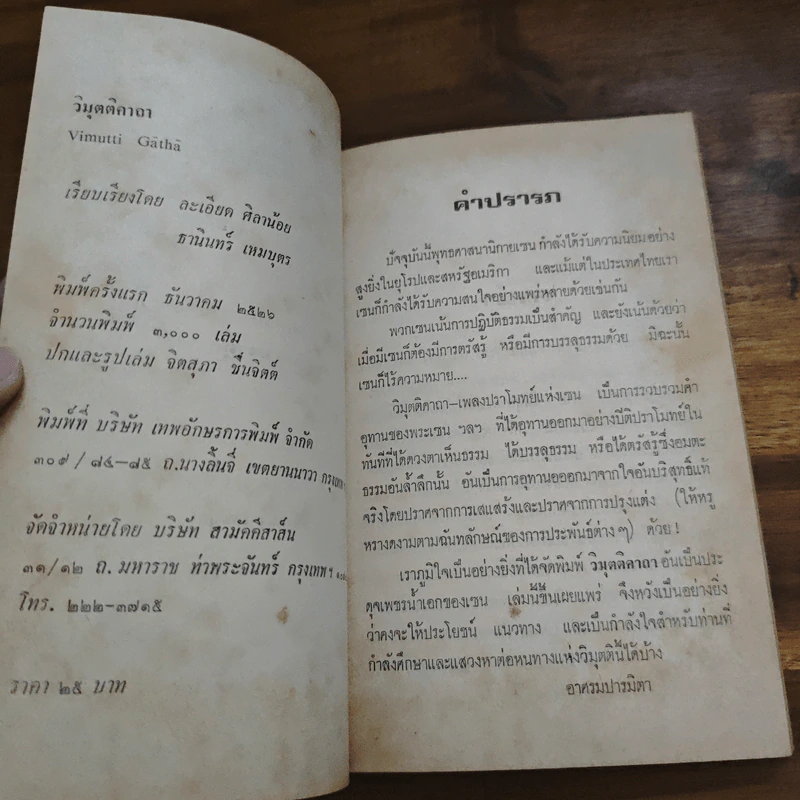 วิมุตติคาถา
Vimutti Gāthā
เรียบเรียงโดย ละเอียด ศิลาน้อย
ธานินทร์ เหมบุตร
พิมพ์ครั้งแรก ธันวาคม ๒๕๒๖
จำนวนพิมพ์ ๓,๐๐๐ เล่ม
ปกและรูปเล่ม จิตสุภา ชื่นจิตต์
พิมพ์ที่ บริษัท เทพอักษรการพิมพ์ จำกัด
๓๐๙/๘๔–๘๕ ถ.นางลิ้นจี่ เขตยานนาวา กรุงเทพ
จัดจำหน่ายโดย บริษัท สามัคคีสาส์น
๓๑/๑๒ ถ.มหาราช ท่าพระจันทร์ กรุงเทพฯ
โทร. ๒๒๒–๓๗๑๕
ราคา ๒๕ บาท
คำปรารภ
ปัจจุบันนี้พุทธศาสนานิกายเซน กำลังได้รับความนิยมอย่าง
สูงยิ่งในยุโรปและสหรัฐอเมริกา และแม้แต่ในประเทศไทยเรา
เซนก็กำลังได้รับความสนใจอย่างแพร่หลายด้วยเช่นกัน
พวกเซนเน้นการปฏิบัติธรรมเป็นสำคัญ และยังเน้นด้วยว่า
เมื่อมีเซนก็ต้องมีการตรัสรู้ หรือมีการบรรลุธรรมด้วย มิฉะนั้น
เซนก็ไร้ความหมาย....
วิมุตติคาถา–เพลงปราโมทย์แห่งเซน เป็นการรวบรวมคำ
อุทานของพระเซน ฯลฯ ที่ได้อุทานออกมาอย่างปีติปราโมทย์ใน
ทันทีที่ได้ดวงตาเห็นธรรม ได้บรรลุธรรม หรือได้ตรัสรู้ซึ่งอมตะ
ธรรมอันล้ำลึกนั้น อันเป็นการอุทานออกมาจากใจอันบริสุทธิ์แท้
จริงโดยปราศจากการเสแสร้งและปราศจากการปรุงแต่ง (ให้หรู
หรางดงามตามฉันทลักษณ์ของการประพันธ์ต่างๆ) ด้วย!
เราภูมิใจเป็นอย่างยิ่งที่ได้จัดพิมพ์ วิมุตติคาถา อันเป็นประ
ดุจเพชรน้ำเอกของเซน เล่มนี้ขึ้นเผยแพร่ จึงหวังเป็นอย่างยิ่ง
ว่าคงจะให้ประโยชน์ แนวทาง และเป็นกำลังใจสำหรับท่านที่
กำลังศึกษาและแสวงหาต่อหนทางแห่งวิมุตตินี้ได้บ้าง
อาศรมปารมิตา